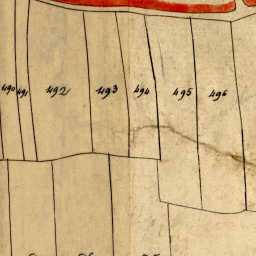 490 491 492 493 494 495 496